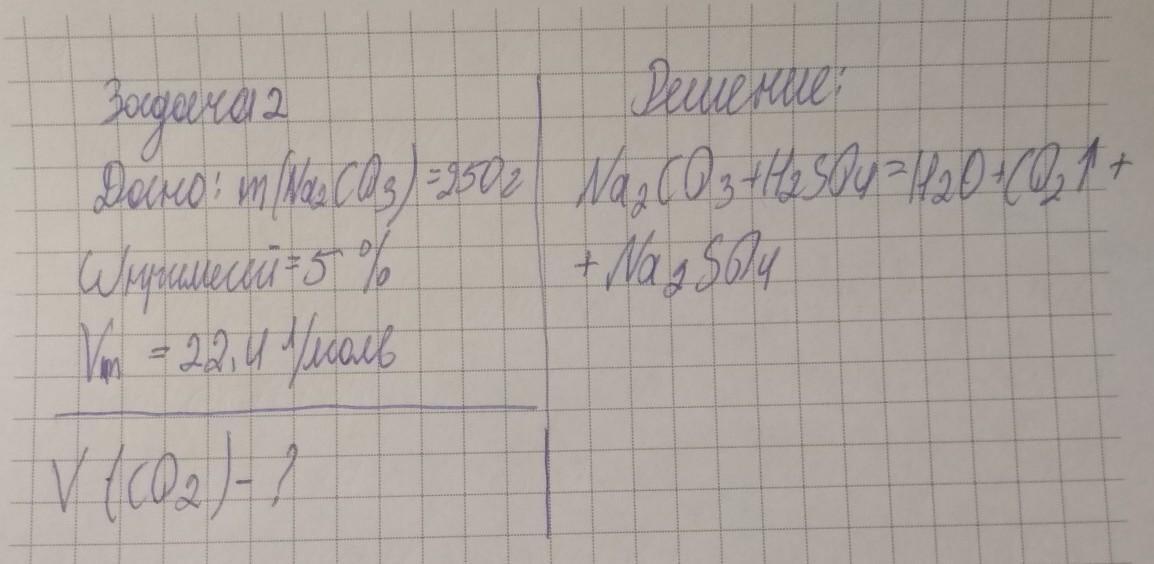 Задача 2
Дано: m(Na2CO3)=250г
Wпримесий=5 %
Vm = 22,4 л/моль
V (CO2)-?
Решение:
Na2CO3+H2SO4=H2O+CO2↑+
+Na2SO4